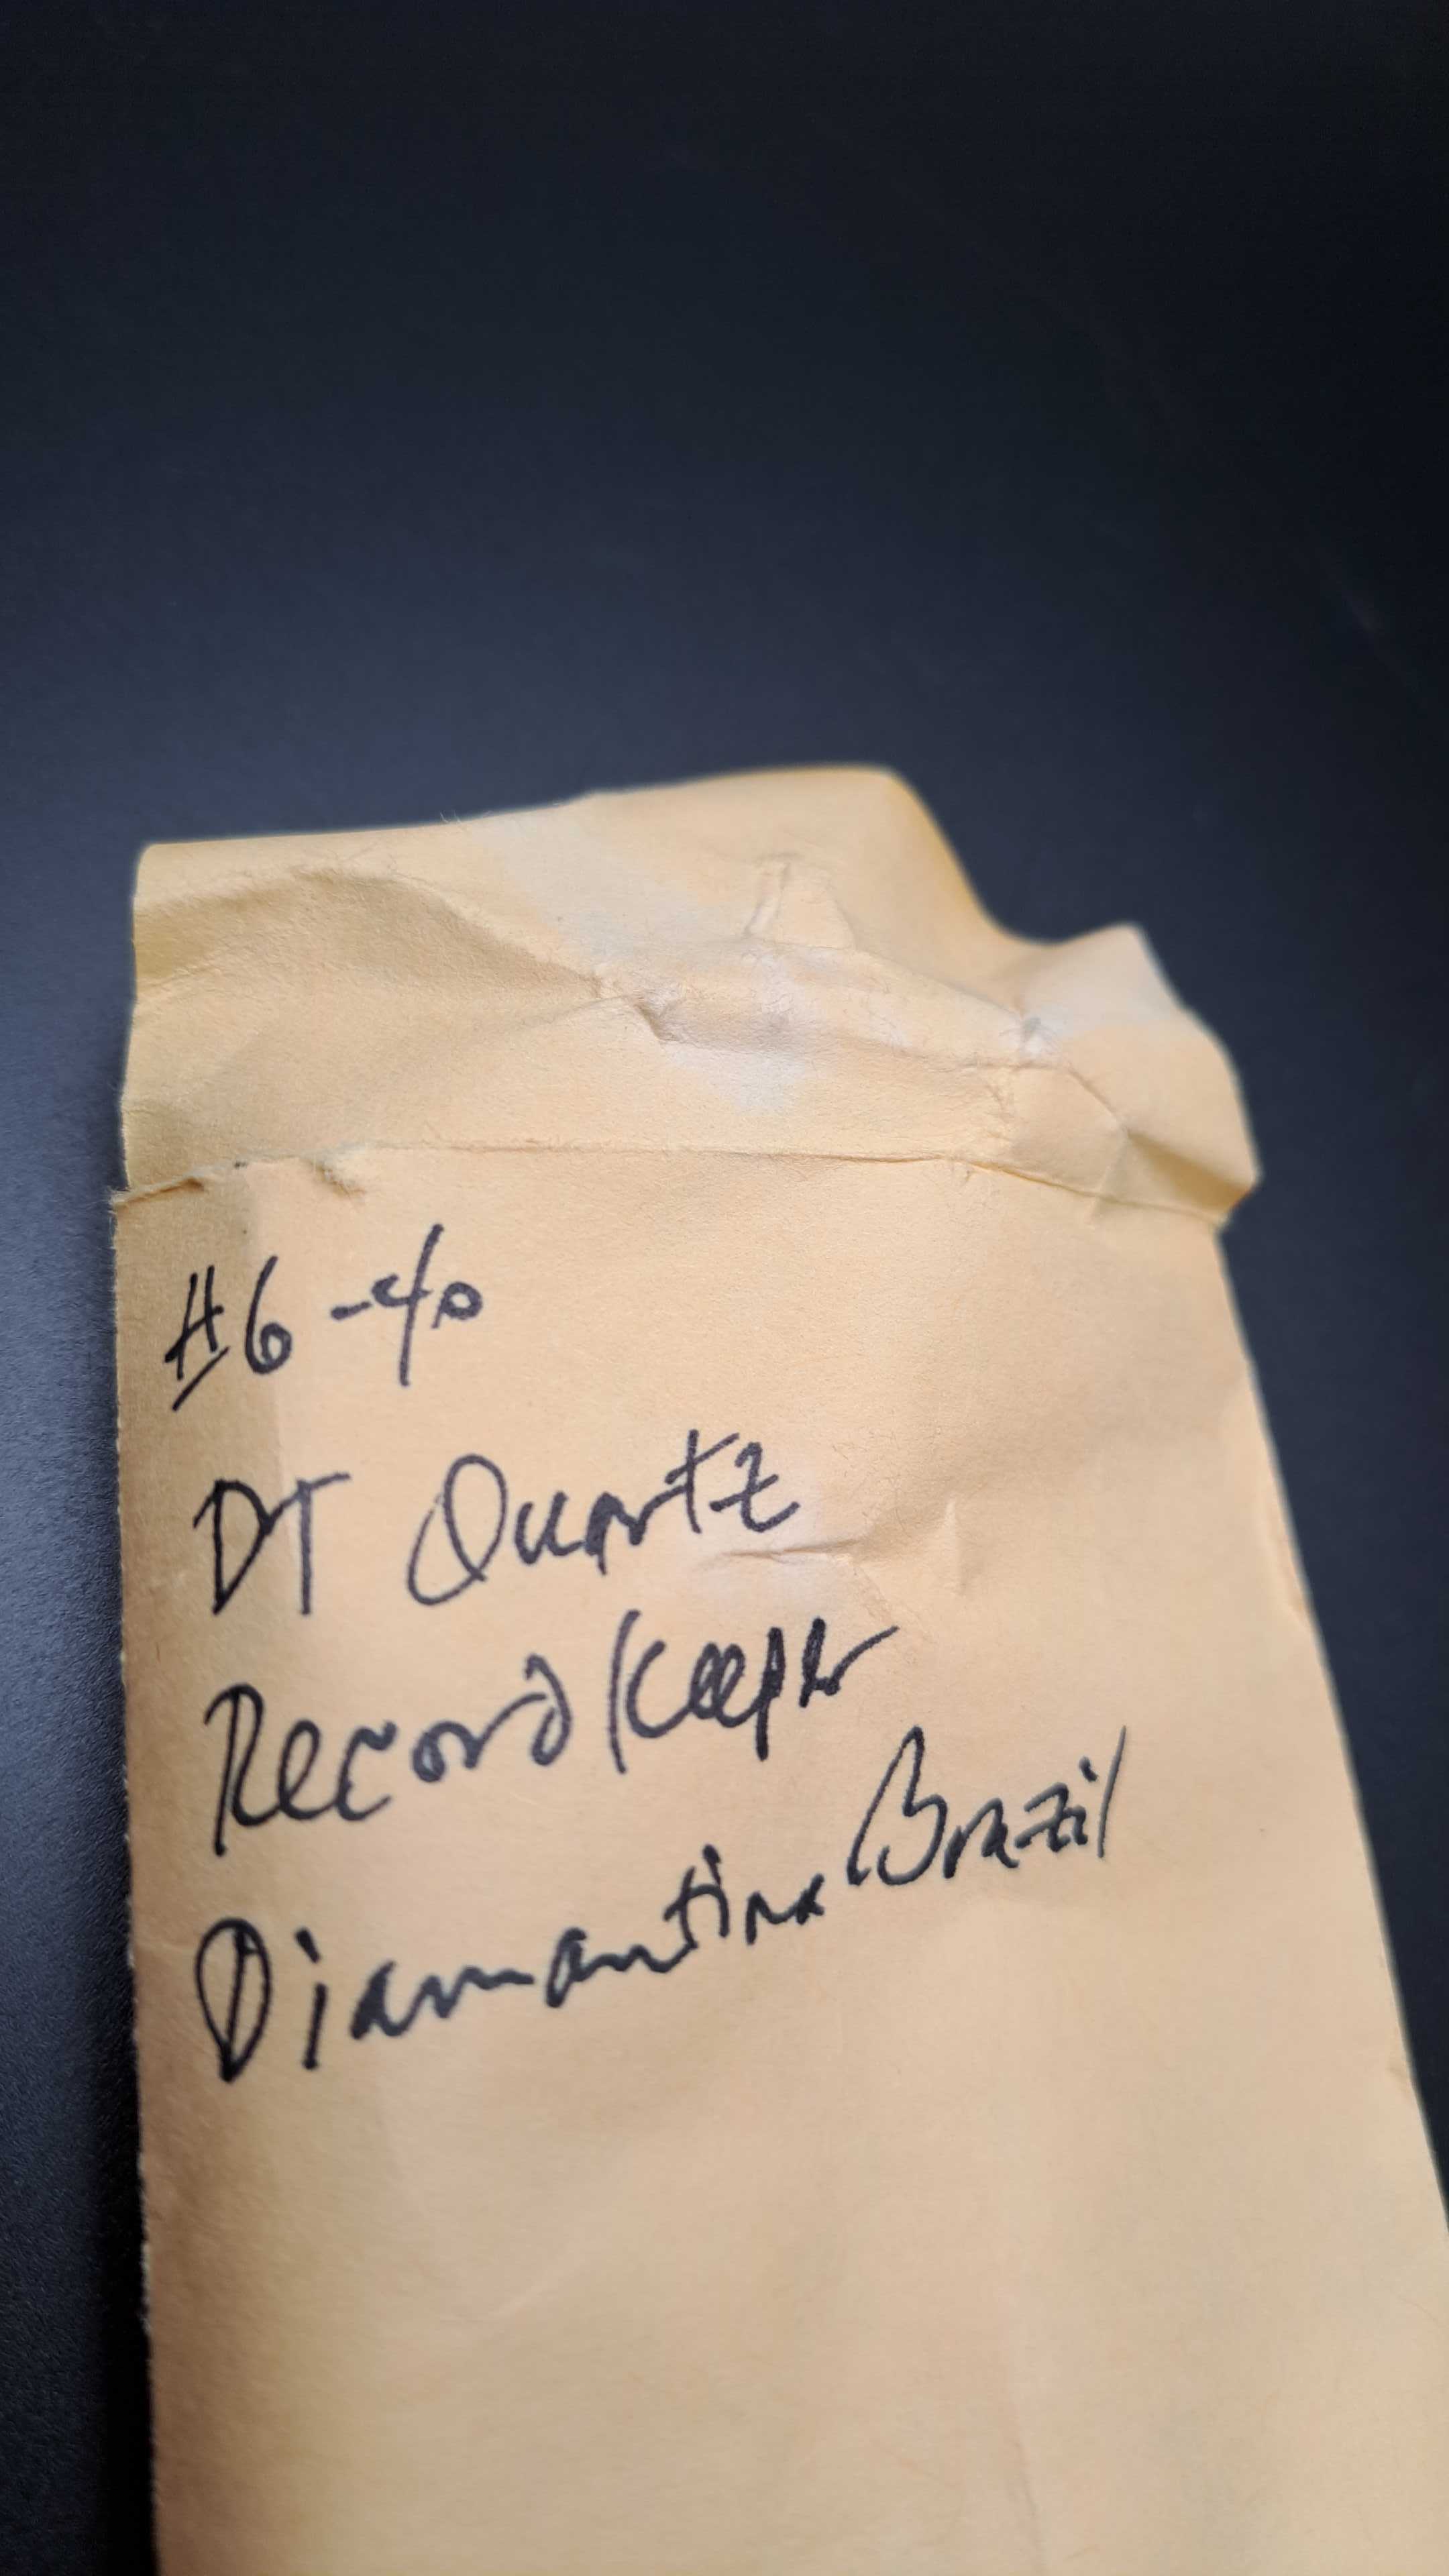 #6-40
DT Quartz
Record Keeper
Diamantina Brazil